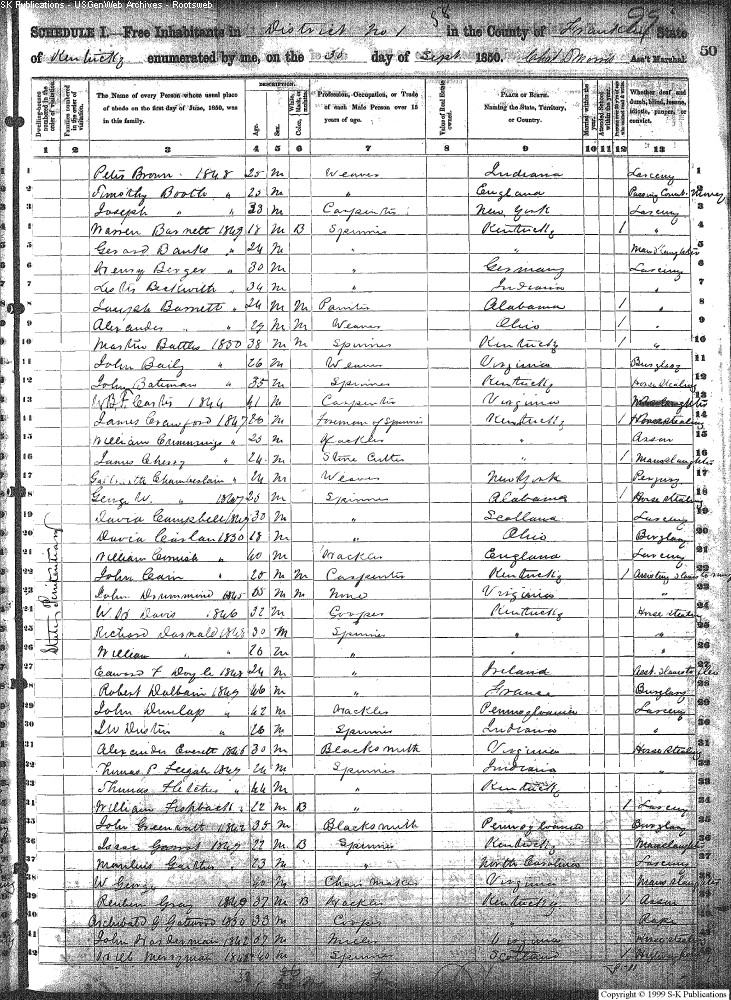 S-K Publications - USGenWeb Archives - Rootsweb
58 99
SCHEDULE I.—Free Inhabitants in District No 1 in the County of Franklin State
of Kentucky enumerated by me, on the 30 day of Sept 1850. Ass't Marshal. 50
DESCRIPTION.
Dwelling-houses numbered in the order of visitation. Families numbered in the order of visitation. The Name of every Person whose usual place of abode on the first day of June, 1850, was in this family. Age. Sex. White, black, or mulatto. Color, Profession, Occupation, or Trade of each Male Person over 15 years of age. Value of Real Estate owned. PLACE OF BIRTH. Naming the State, Territory, or Country. Married within the year. Attended School within the year. Whether deaf and dumb, blind, insane, idiotic, pauper, or convict.
1 2 3 4 5 6 7 8 9 10 11 12 13
1 Peter Brown 1848 25 M Weaver Indiana Larceny 1
2 Timothy Booth " 25 M " England Passing Count. Money 2
3 Joseph " " 23 M Carpenter New York Larceny 3
4 Warren Barnett 1849 18 M B Spinner Kentucky 1 " 4
5 Gerard Banks " 24 M " " Manslaughter 5
6 Henry Berger " 30 M " Germany Larceny 6
7 Beckwith " 34 M " Indiana " 7
8 Joseph Barnett " 24 M M Painter Alabama 1 " 8
9 Alexander " " 29 M M Weaver Ohio 1 " 9
10 Martin Battles 1850 38 M M Spinner Kentucky 1 " 10
11 John Baily " 26 M Weaver Virginia Burglary 11
12 John Bateman " 35 M Spinner Kentucky Horse Stealing 12
13 W B F Carter 1844 41 M Carpenter Virginia Manslaughter 13
14 James Crawford 1847 26 M Foreman of Spinners Kentucky 1 Horse stealing 14
15 William Cummings " 25 M Hackler " Arson 15
16 James Cherry " 24 M Stone Cutter " 1 Manslaughter 16
17 Chamberlain " 24 M Weaver New York Perjury 17
18 George W. " 1849 25 M Spinner Alabama 1 Horse Stealing 18
19 David Campbell 1849 30 M " Scotland Larceny 19
20 David Caslan 1850 18 M " Ohio Burglary 20
21 William Cornish " 40 M Hackler England Larceny 21
22 John Cain " 25 M M Carpenter Kentucky 1 Assisting slaves to 22
23 John Drummond 1845 65 M M None Virginia " 23
24 W H Davis 1846 32 M Cooper Kentucky Horse stealing 24
25 Richard Darnald 1848 30 M Spinner " " 25
26 William " " 26 M " " " 26
27 Edward F Doyle 1848 24 M " Ireland Asst. slaves to 27
28 Robert Dalbain 1849 46 M " France Burglary 28
29 John Dunlap " 42 M Hackler Pennsylvania Larceny 29
30 J W Dustin " 26 M Spinner Indiana " 30
31 Alexander Everett 1846 30 M Blacksmith Virginia Horse Stealing 31
32 Thomas P 1849 24 M Spinner Indiana " 32
33 Thomas Fletcher " 44 M " Kentucky " 33
34 William Fishback " 22 M B " " 1 Larceny 34
35 John Greenwalt 1842 35 M Blacksmith Pennsylvania Burglary 35
36 Isaac 1849 22 M B Spinner Kentucky Manslaughter 36
37 23 M " North Carolina Larceny 37
38 W George 40 M Chair Maker Virginia Manslaughter 38
39 Reuben Gray 1849 37 M B Hackler Kentucky 1 Arson 39
40 Archibald G Gatewood 1850 33 M Cooper " Rape 40
41 John Harderman 1842 37 M Miller Virginia Horse stealing 41
42 Merryman 1848 40 M Spinner Scotland 1 42
State Penitentiary
Copyright © 1999 S-K Publications